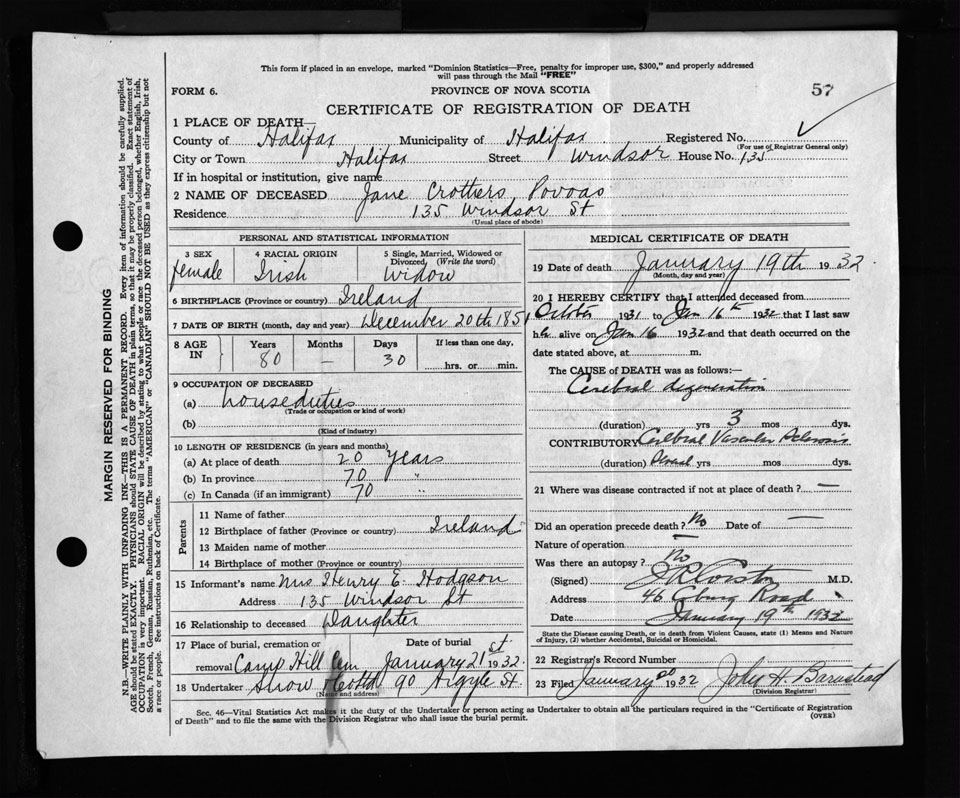 This form if placed in an envelope, marked "Dominion Statistics—Free, penalty for improper use, $300," and properly addressed
will pass through the Mail "FREE"
FORM 6.
PROVINCE OF NOVA SCOTIA
57
CERTIFICATE OF REGISTRATION OF DEATH
1 PLACE OF DEATH—
County of Halifax Municipality of Halifax Registered No.
(For use of Registrar General only)
City or Town Halifax Street Windsor House No. 135
If in hospital or institution, give name
2 NAME OF DECEASED Jane Crothers Povoas
Residence 135 Windsor St
(Usual place of abode)
PERSONAL AND STATISTICAL INFORMATION
3 SEX female
4 RACIAL ORIGIN Irish
5 Single, Married, Widowed or Divorced, (Write the word) Widow
6 BIRTHPLACE (Province or country) Ireland
7 DATE OF BIRTH (month, day and year) December 20th 1851
8 AGE IN Years 80 Months — Days 30 If less than one day, hrs. or min.
9 OCCUPATION OF DECEASED
(a) houseduties
(Trade or occupation or kind of work)
(b)
(Kind of industry)
10 LENGTH OF RESIDENCE (in years and months)
(a) At place of death 20 years
(b) In province 70 "
(c) In Canada (if an immigrant) 70 "
Parents
11 Name of father
12 Birthplace of father (Province or country) Ireland
13 Maiden name of mother
14 Birthplace of mother (Province or country)
15 Informant's name Mrs Henry E. Hodgson
Address 135 Windsor St
16 Relationship to deceased Daughter
17 Place of burial, cremation or removal Camp Hill Cem Date of burial January 21st 1932.
18 Undertaker Snow 90 Argyle St.
(Name and address)
MEDICAL CERTIFICATE OF DEATH
19 Date of death January 19th 1932.
(Month, day and year)
20 I HEREBY CERTIFY that I attended deceased from
October 1931 to Jan 16th 1932 that I last saw
h alive on Jan 16 1932 and that death occurred on
date stated above, at m.
The CAUSE of DEATH was as follows:—
Cerebral degeneration
(duration) yrs 3 mos dys.
CONTRIBUTORY Cerebral Vascular Sclerosis
(duration) Several yrs mos dys.
21 Where was disease contracted if not at place of death? —
Did an operation precede death? No Date of —
Nature of operation —
Was there an autopsy? No
(Signed) M.D.
Address 46 Road
Date January 19th 1932
State the Disease causing Death, or in death from Violent Causes, state (1) Means and Nature
of Injury, (2) whether Accidental, Suicidal or Homicidal.
22 Registrar's Record Number
23 Filed January 1932 John H. Barnstead
(Division Registrar)
Sec. 46—Vital Statistics Act makes it the duty of the Undertaker or person acting as Undertaker to obtain all the particulars required in the "Certificate of Registration
of Death" and to file the same with the Division Registrar who shall issue the burial permit.
(OVER)
MARGIN RESERVED FOR BINDING
N.B.—WRITE PLAINLY WITH UNFADING INK—THIS IS A PERMANENT RECORD. Every item of information should be carefully supplied.
AGE should be stated EXACTLY. PHYSICIANS should STATE CAUSE OF DEATH in plain terms, so that it may be properly classified. Exact statement of
OCCUPATION is very important. RACIAL ORIGIN will be described by stating to what people or race the deceased person belonged, whether English, Irish,
Scotch, French, German, Russian, Ruthenian, etc. The terms "AMERICAN" or "CANADIAN" SHOULD NOT BE USED as they express citizenship but not
a race or people. See instructions on back of Certificate.